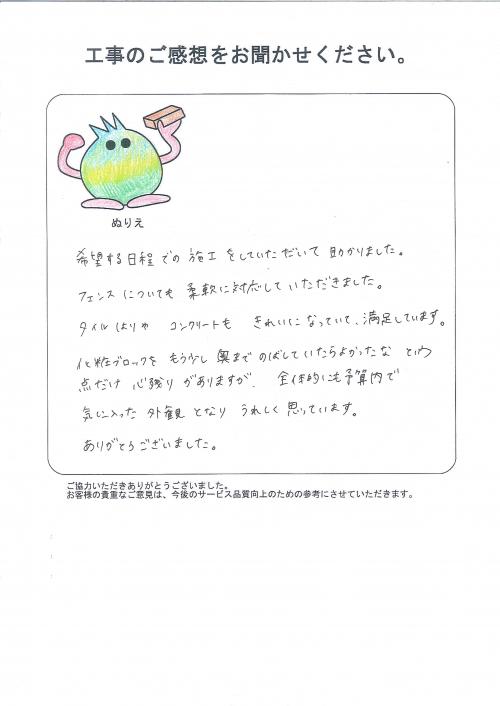 工事のご感想をお聞かせください。
ぬりえ
希望する日程での施工をしていただいて助かりました。
フェンスについても柔軟に対応していただきました。
タイルはりや コンクリートも きれいになっていて、満足しています。
化粧ブロックを もう少し 奥まで のばしていたらよかったな という
点だけ 心残り がありますが、 全体的にも予算内で
気に入った 外観 となり うれしく 思っています。
ありがとうございました。
ご協力いただきありがとうございました。
お客様の貴重なご意見は、今後のサービス品質向上のための参考にさせていただきます。